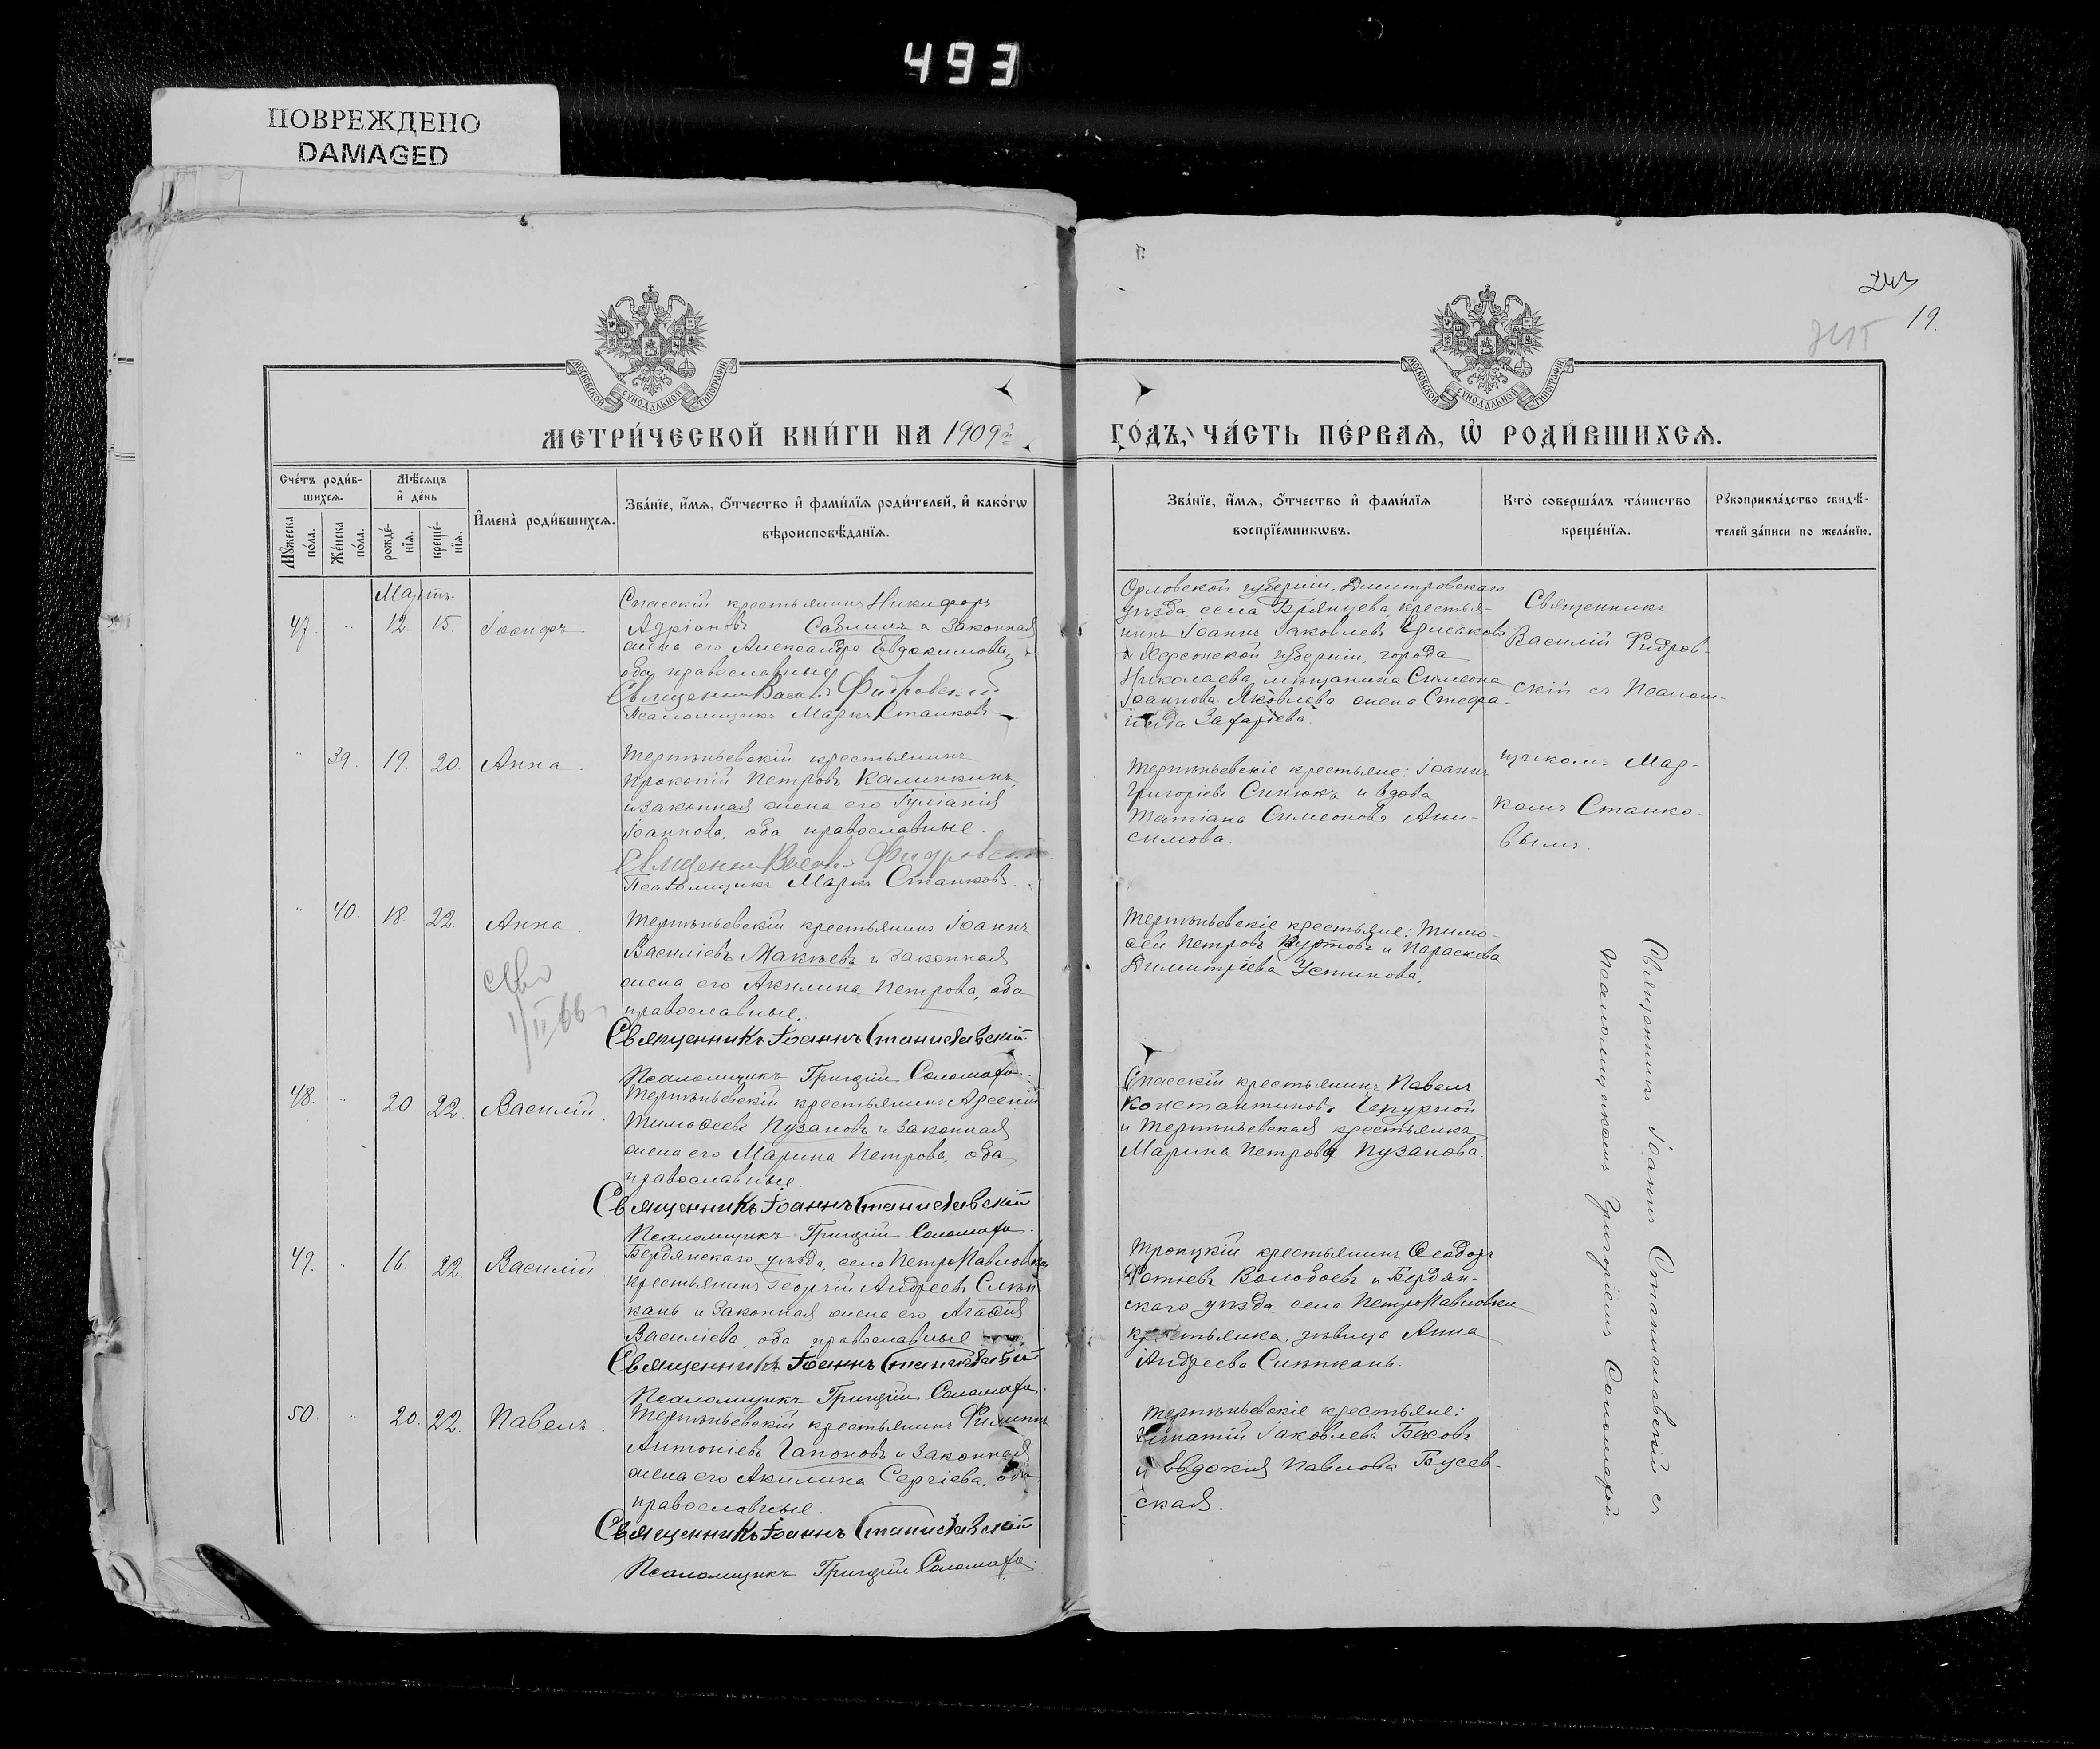 493
ПОВРЕЖДЕНО
DAMAGED
19.
МОСКОВСКОЙ СѴНОДАЛЬНОЙ ТИПОГРАФІИ
МОСКОВСКОЙ СѴНОДАЛЬНОЙ ТИПОГРАФІИ
МЕТРИ́ЧЕСКОЙ КНИ́ГИ НА 1909й
ГО́ДЪ, ЧА́СТЬ ПЕ́РВАѦ, Ѡ҆ РОДИ́ВШИХСѦ.
Сче́тъ роди́в-
шихсѧ.
Мꙋ́жеска по́ла.
Же́нска по́ла.
Мѣ́сѧцъ
и҆ де́нь
рожде́-
нїѧ.
креще́-
нїѧ.
И҆мена̀ роди́вшихсѧ.
Зва́нїе, и҆́мѧ, ѻ҆́тчество и҆ фами́лїѧ роди́телей, и҆ како́гѡ
вѣроисповѣ́данїѧ.
Зва́нїе, и҆́мѧ, ѻ҆́тчество и҆ фами́лїѧ
воспрїе́мникѡвъ.
Кто̀ соверша́лъ та́инство
креще́нїѧ.
Рꙋкоприкла́дство свидѣ́-
телей за́писи по жела́нїю.
Мартъ.
47. " 12. 15. Іосифъ
Спасскій крестьянинъ Никифоръ
Адріановъ Савлинъ и законная
жена его Александра Евдокимова,
оба православные
Священникъ Василій Фидровскій
Псаломщикъ Маркъ Станковъ
Орловской губерніи, Дмитровскаго
уѣзда, села Брянцева, крестья-
нинъ Іоаннъ Іаковлевъ Ермаковъ
и Херсонской губерніи, города
Николаева, мѣщанина Симеона
Іоаннова Яковлева жена Стефа-
нида Захаріева.
Священникъ
Василій Фидров-
скій съ Псалом-
щикомъ Мар-
комъ Станко-
вымъ.
" 39. 19. 20. Анна.
Терпѣньевскій крестьянинъ
Прокопій Петровъ Калинкинъ
и законная жена его Іуліанія
Іоаннова, оба православные.
Священникъ Василій Фидровскій
Псаломщикъ Маркъ Станковъ.
Терпѣньевскіе крестьяне: Іоаннъ
Григоріевъ Синюкъ и вдова
Татіана Симеонова Ани-
симова.
" 40. 18. 22. Анна.
1/II 66
Терпѣньевскій крестьянинъ Іоаннъ
Василіевъ Макѣевъ и законная
жена его Акилина Петрова, оба
православные.
Священникъ Іоаннъ Станиславскій.
Псаломщикъ Григорій Соломаха.
Терпѣньевскіе крестьяне: Тимо-
ѳей Петровъ Куртовъ и Параскева
Димитріева Устинова.
48. " 20. 22. Василій.
Терпѣньевскій крестьянинъ Арсеній
Тимоѳеевъ Пузановъ и законная
жена его Марина Петрова, оба
православные.
Священникъ Іоаннъ Станиславскій
Псаломщикъ Григорій Соломаха.
Спасскій крестьянинъ Павелъ
Константиновъ Чепурной
и Терпѣньевская крестьянка
Марина Петрова Пузанова.
Священникъ Іоаннъ Станиславскій съ
Псаломщикомъ Григоріемъ Соломахой.
49. " 16. 22. Василій.
Бердянскаго уѣзда, села Петропавловки
крестьянинъ Георгій Андреевъ Сикъ-
кань и законная жена его Агаѳія
Василіева, оба православные
Священникъ Іоаннъ Станиславскій
Псаломщикъ Григорій Соломаха.
Троицкій крестьянинъ Ѳеодоръ
Фотіевъ Волобоевъ и Бердян-
скаго уѣзда, села Петропавловки
крестьянка, дѣвица Анна
Андреева
50 " 20. 22. Павелъ.
Терпѣньевскій крестьянинъ Филиппъ
Антоніевъ Гапоновъ и законная
жена его Акилина Сергіева, оба
православные.
Священникъ Іоаннъ Станиславскій
Псаломщикъ Григорій Соломаха.
Терпѣньевскіе крестьяне:
Игнатій Іаковлевъ Бѣховъ
и Евдокія Павлова Бусев-
ская.